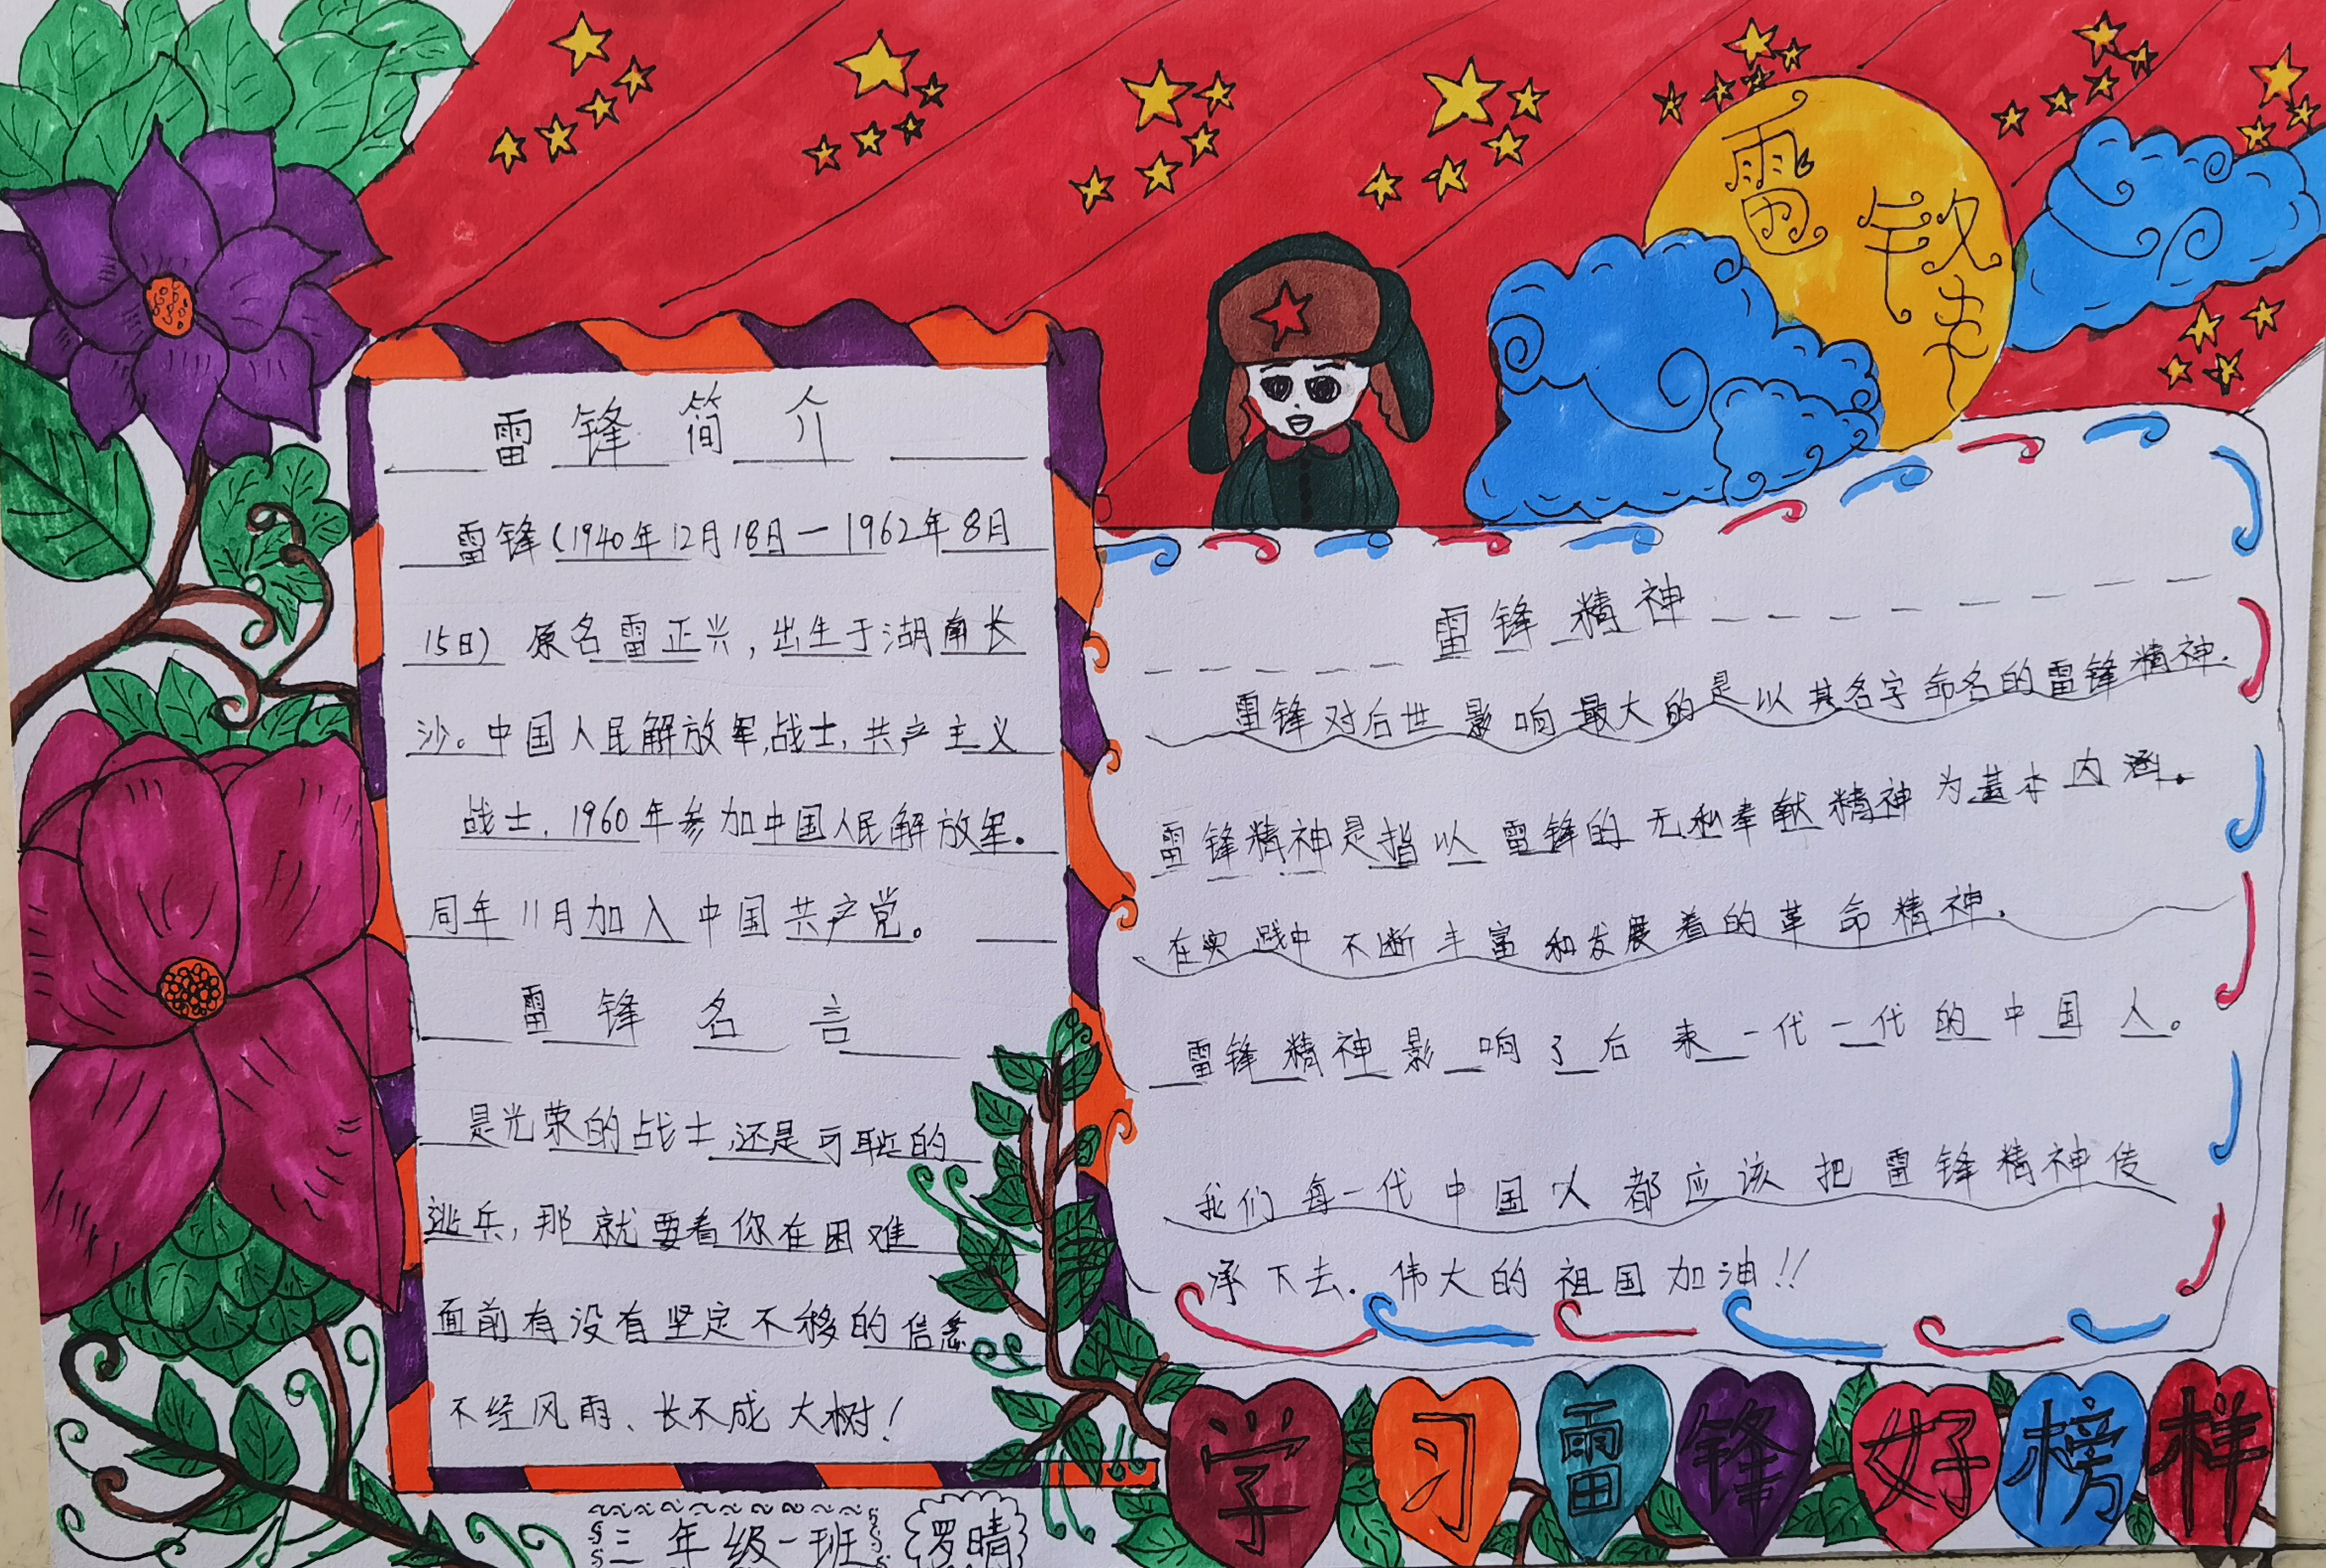 雷锋
雷锋简介
雷锋(1940年12月18日—1962年8月
15日) 原名雷正兴，出生于湖南长
沙。中国人民解放军战士，共产主义
战士，1960年参加中国人民解放军。
同年11月加入中国共产党。
雷锋名言
是光荣的战士，还是可耻的
逃兵，那就要看你在困难
面前有没有坚定不移的信念
不经风雨、长不成大树！
三年级一班 罗晴
雷锋精神
雷锋对后世影响最大的是以其名字命名的雷锋精神.
雷锋精神是指以雷锋的无私奉献精神为基本内涵。
在实践中不断丰富和发展着的革命精神.
雷锋精神影响了后来一代一代的中国人。
我们每一代中国人都应该把雷锋精神传
承下去.伟大的祖国加油!!
学习雷锋好榜样